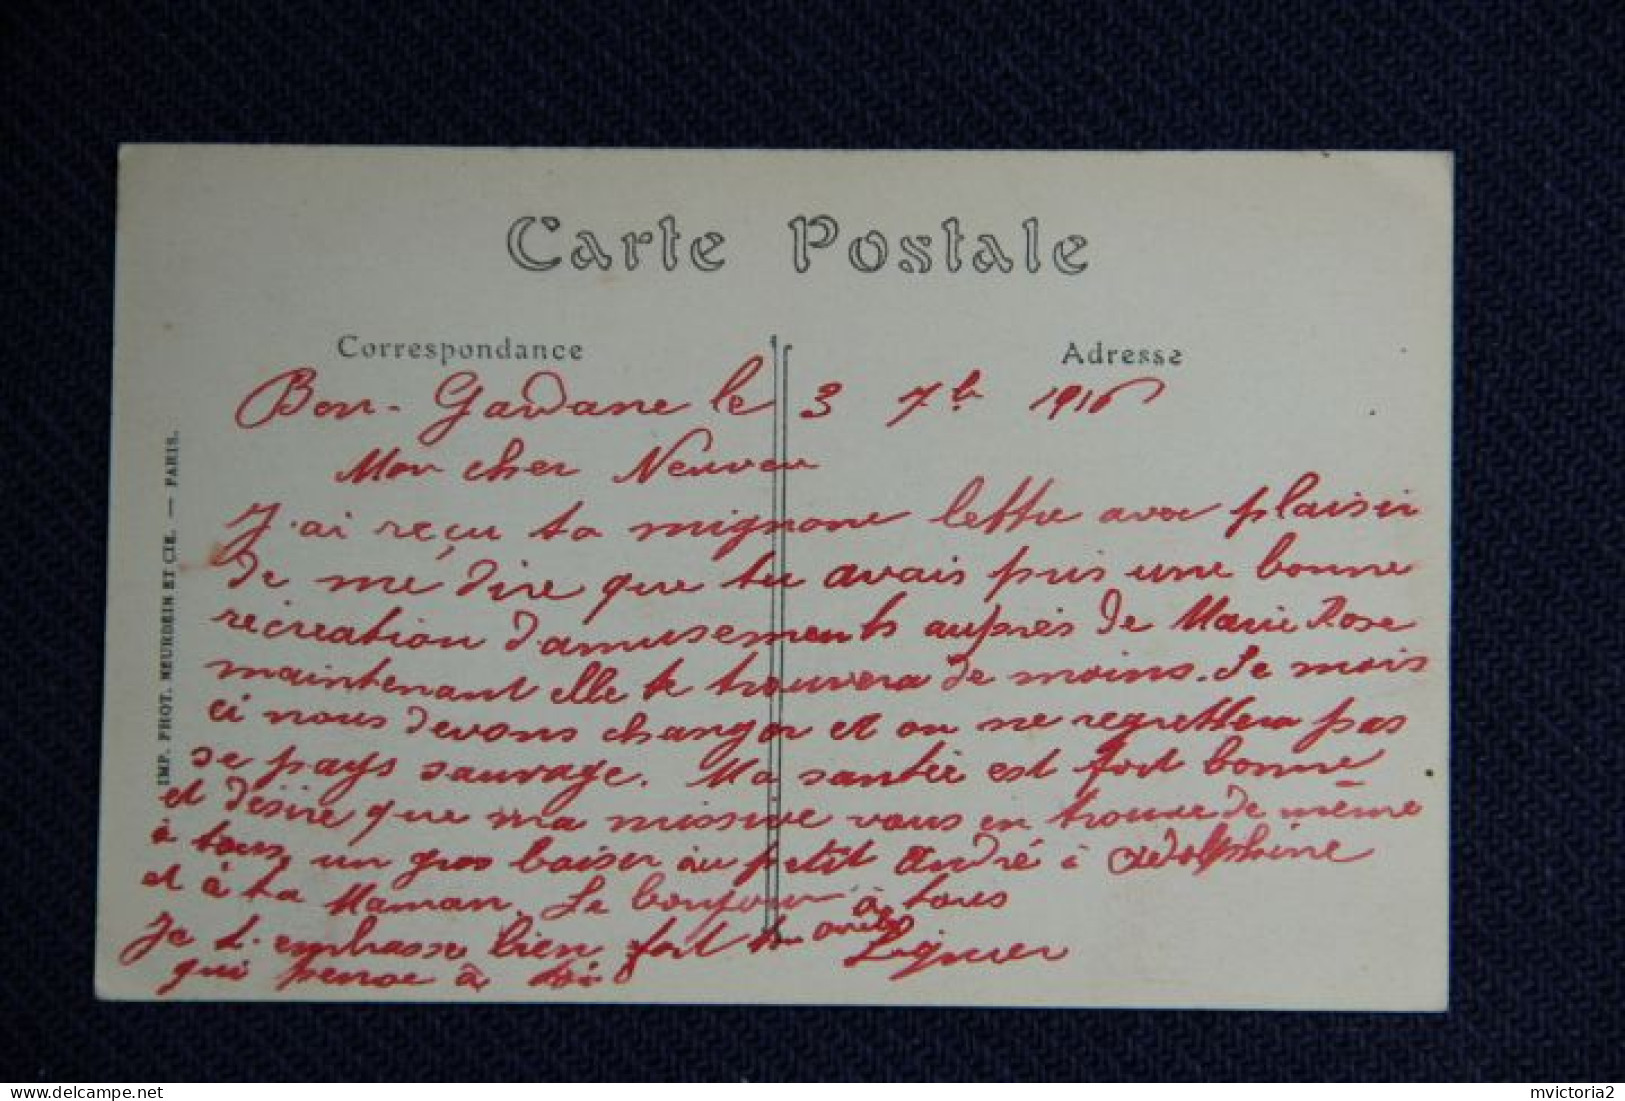 Carte Postale
Correspondance
Adresse
Bou-Gardane le 3 7bre 1916
Mon cher Neuveu
J'ai reçu ta mignone lettre avec plaisir
de me dire que tu avais pris une bonne
récreation d'amusements auprès de Marie Rose
maintenant elle te trouvera de moins. Ce mois
ci nous devons changer et on ne regrettera pas
se pays sauvage. Ma santée est fort bonne
et désire que ma missive vous en trouve de même
à tous, un gros baiser au petit André à Adolphine
et à ta Maman. Le bonjour à tous
Je t'embrasse bien fort ton oncle
qui pense à toi
IMP. PHOT. NEURDEIN ET CIE. — PARIS.
mvictoria2